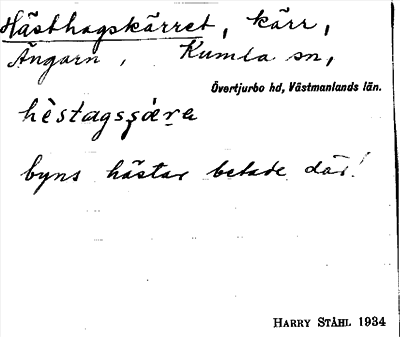 Hästhagskärret, kärr,
Ängarn, Kumla sn,
Övertjurbo hd, Västmanlands län.
hèstagsʂæ̀ra
byns hästar betade där!
HARRY STÅHL 1934